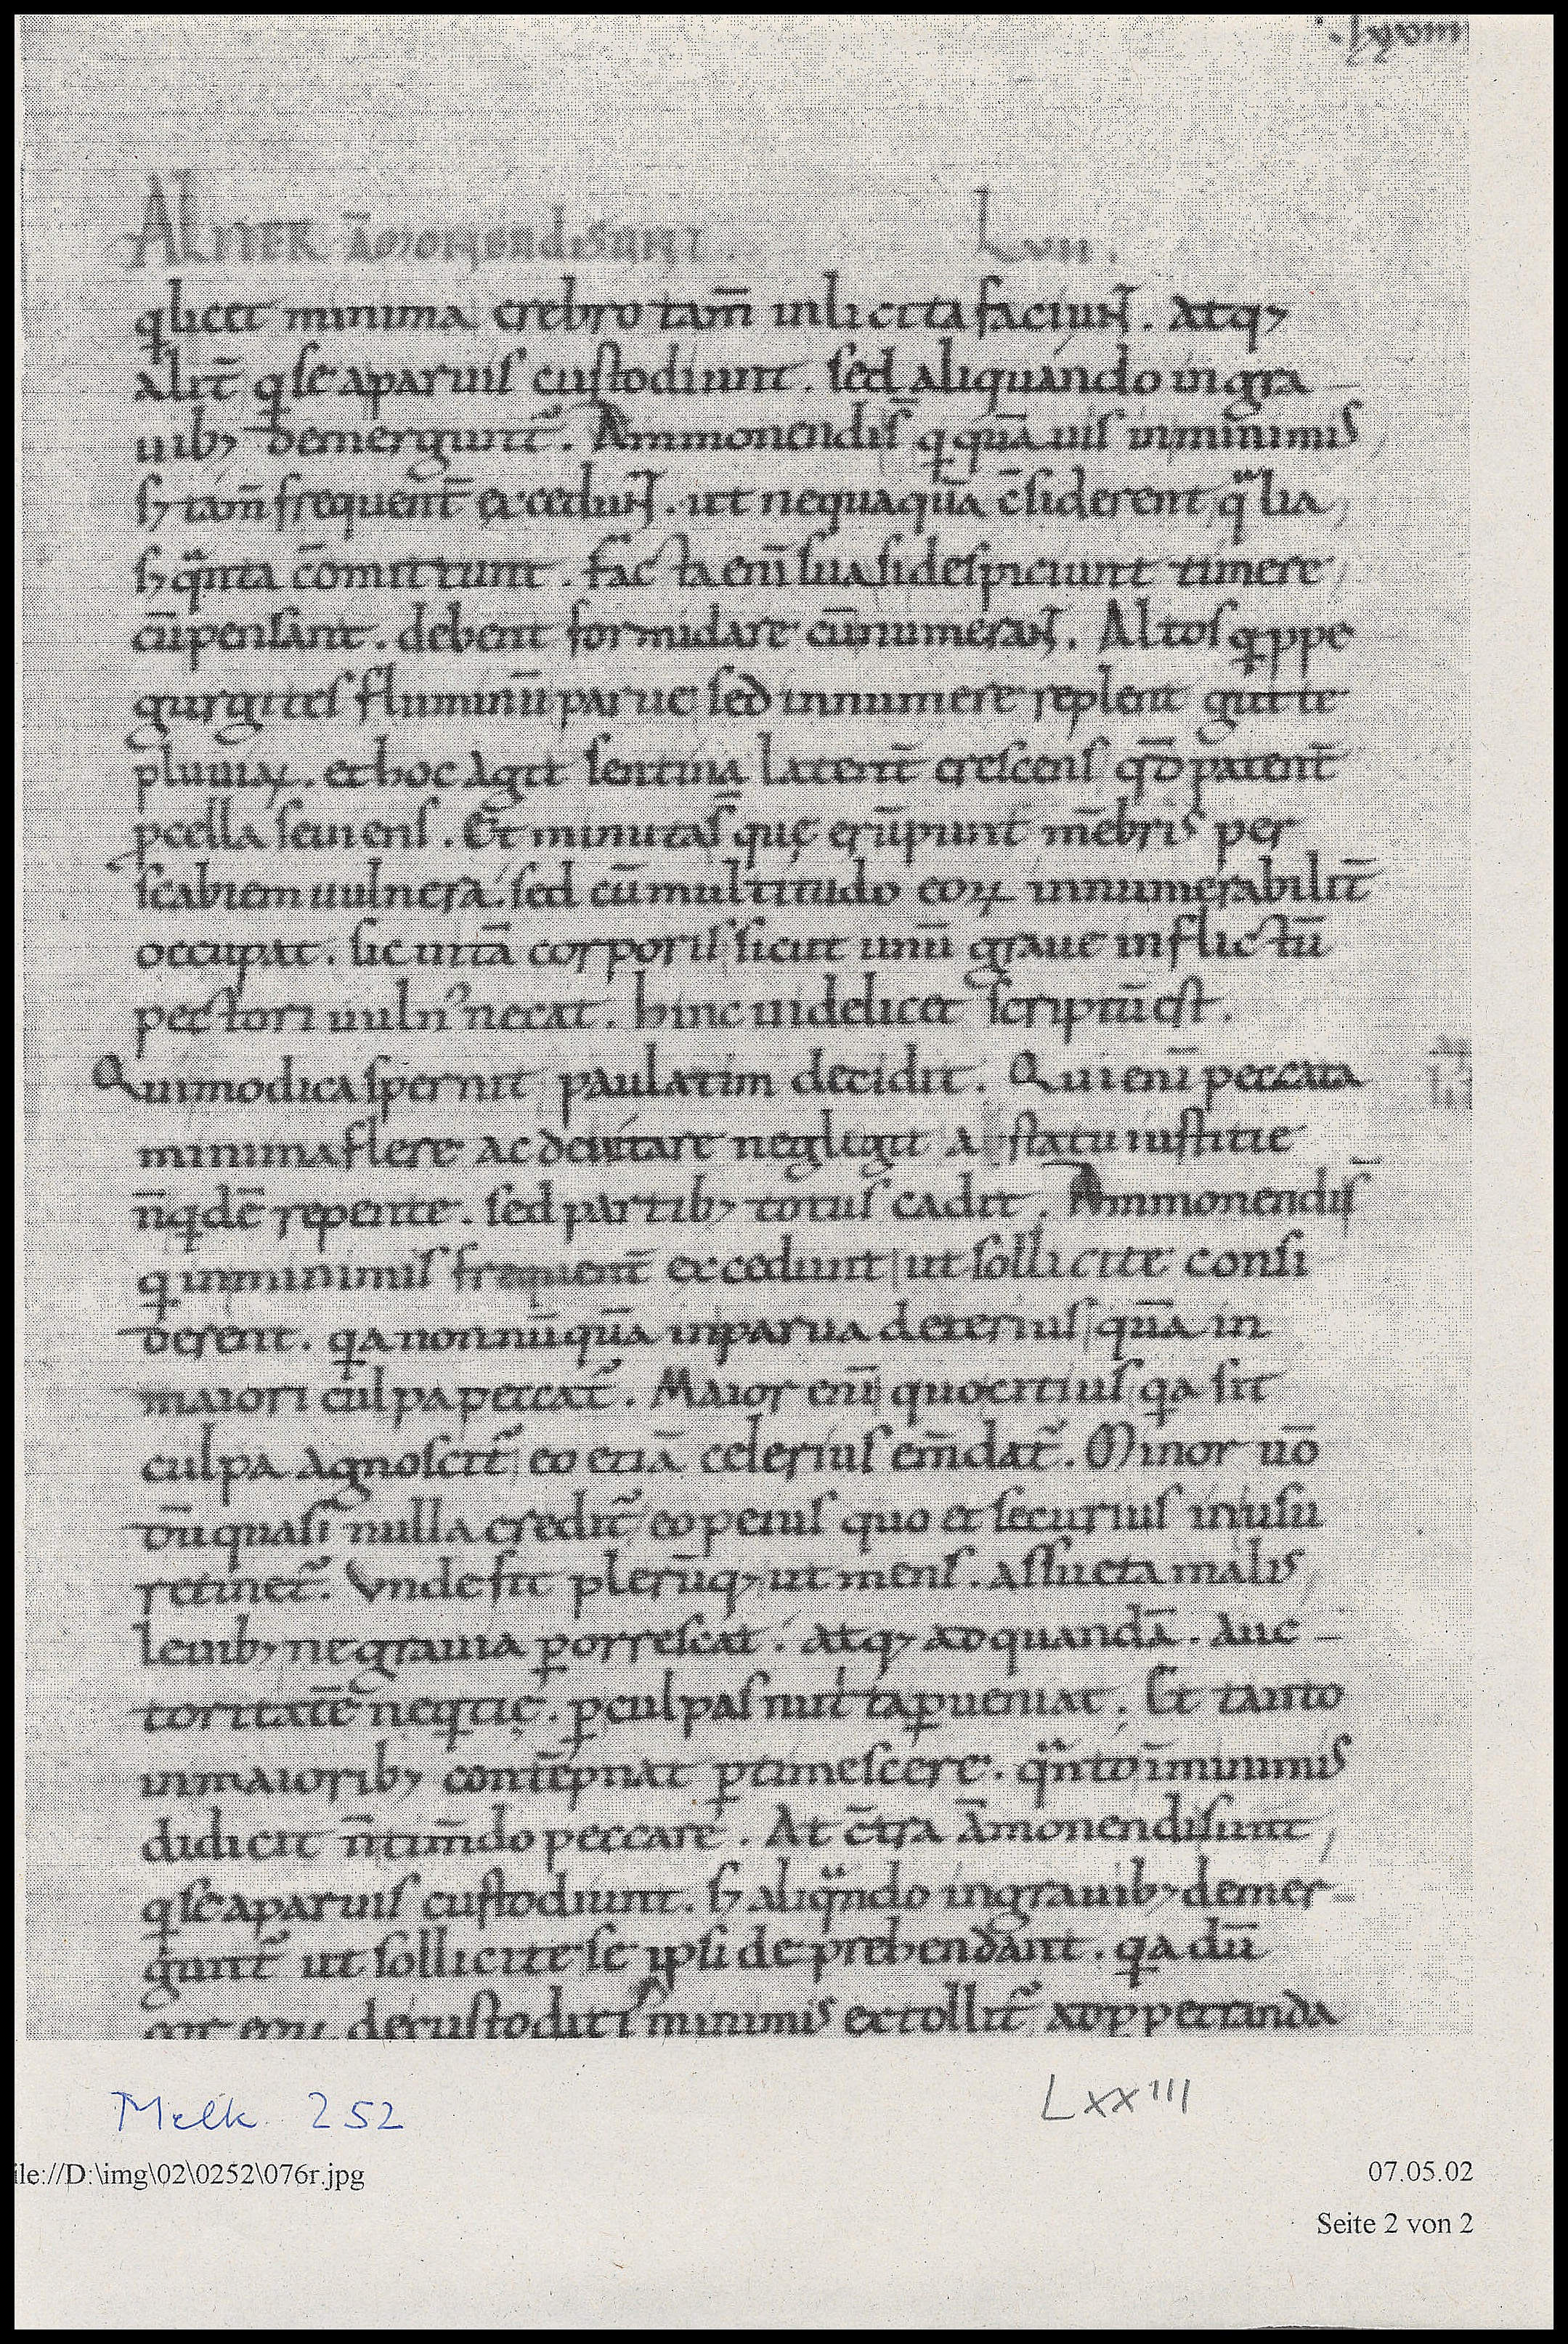 Lxxviii
ALITER ĀMONENDI SUNT . Lvii .
q licet minima crebro tam̄ inlicita faciunt . atq;
alit̄ q se a paruis custodiunt . sed aliquando in gra
uib; demergunt̄ . Ammonendi s̄ q quāuis in minimis
sȝ tam̄ frequent̄ excedunt . ut nequaquā c̄siderent qͣlia
sȝ qͣnta cōmittunt . Facta eni̅ sua si despiciunt timere
cū pensant . debent formidare cū numerant . Altos qppe
gurgites fluminū parue sed innumere replent gutte
pluuiaꝝ . et hoc agit sentina latent̄ crescens qđ patent̄
pcella seuiens . Et minuta s̄ quę erūpunt mēbris per
scabiem uulnera . sed cū multitudo eoꝝ innumerabilit̄
occupat . sic uitā corporis sicut unū graue inflictū
pectori uuln᾽ necat . hinc uidelicet scriptū est .
Qui modica spernit paulatim decidit . Qui eni̅ peccata
minima flere ac deuitare negligit a statu iustitie
n̄ qdē repente . sed partib; totus cadit . Ammonendi s̄
q in minimis frequent̄ excedunt ut sollicite consi
derent . qa nonnūquā in parua deterius quā in
maiori culpa peccat̄ . Maior eni̅ quo citius qa sit
culpa agnoscit̄ eo etiā celerius em̄dat̄ . Minor uō
dū quasi nulla credit̄ eo peius quo et securius in usu
retinet̄ . Vnde fit plerūq; ut mens . assueta malis
leuib; ne grauia ꝑorrescat . atq; ad quandā . auc
toritatē neqtię . ꝑ culpas nutrita ꝑueniat . Et tanto
in maiorib; contēpnat ꝑtimescere . qͣnto ī minimis
didicit n̄ tim̄do peccare . At c̄tra āmonendi sunt
q se a paruis custodiunt . sȝ aliqͣndo in grauib; demer
gunt̄ ut sollicite se ipsi deprehendant . qa dū
cor eoꝝ de custoditis minimis extollit̄ ad ppetranda
Melk 252
LXXIII
ile://D:\img\02\0252\076r.jpg
07.05.02
Seite 2 von 2